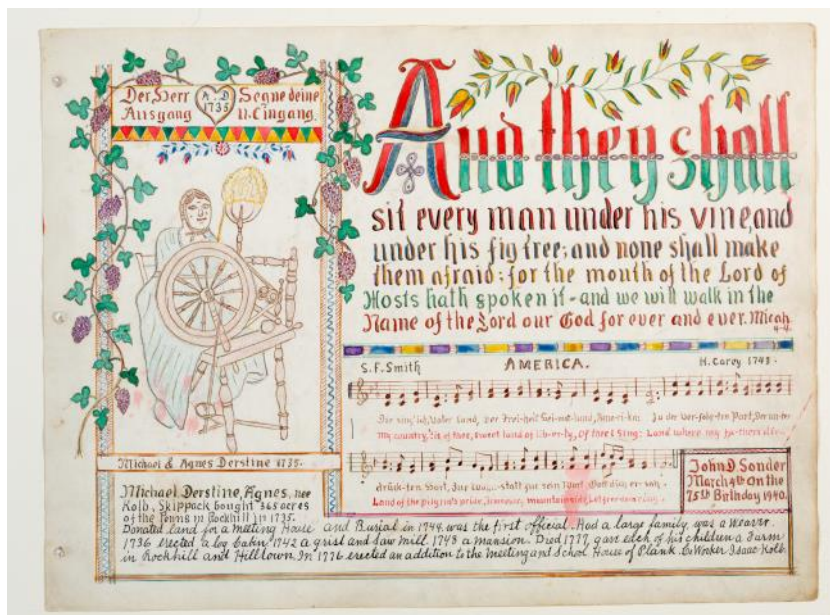 Der Herr A.D. Segne deine
Ausgang 1735 u. Eingang.
And they shall
sit every man under his vine, and
under his fig tree; and none shall make
them afraid: for the mouth of the Lord of
Hosts hath spoken it - and we will walk in the
Name of the Lord our God for ever and ever. Micah
4-4.
S.F. Smith AMERICA. H. Carey 1743.
My country, 'tis of thee, sweet land of lib-er-ty, Of thee I sing: Land where my fa-thers
Land of the pilgrim's pride,
Michael & Agnes Derstine 1735.
John D. Souder
March 4th On the
75th Birthday 1940.
Michael Derstine, Agnes, nee
Kolb, Skippack bought 365 acres
of the Penns in Rockhill in 1735.
Donated land for a Meeting House and Burial in 1744. was the first official. Had a large family, was a Weaver.
1736 erected a log Cabin, 1742 a grist and Saw Mill. 1743 a mansion. Died 1777, gave each of his children a Farm
in Rockhill and Hilltown. In 1776 erected an addition to the Meeting and School House of Plank. Co Worker Isaac Kolb.